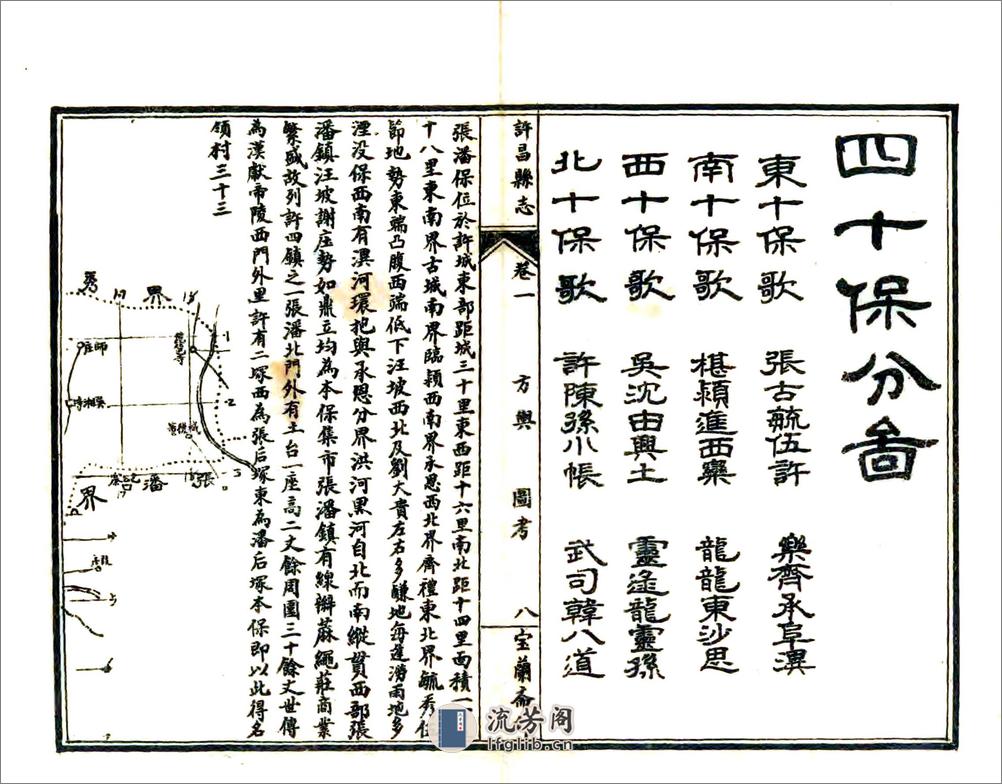 四十保分啚
東十保歌　張古毓伍許　樂齊承阜潩
南十保歌　椹潁進西欒　龍龍東沙思
西十保歌　吳沈由興土　靈逵龍靈孫
北十保歌　許陳孫小帳　武司韓八道
許昌縣志　卷一　方輿　圖考　八　宝蘭斋
張潘保位於許城東部距城三十里東西距十六里南北距十四里面積一
十八里東南界古城南界臨潁西南界承恩西北界齊禮東北界毓秀任
節地勢東端凸腹西端低下汪坡西北及劉大貴左右多鹻地每逢澇雨地多
湮没保西南有潩河環抱與承恩分界洪河黑河自北而南縱貫西部張
潘鎮汪坡謝庄勢如鼎立均為本保集市張潘鎮有線辮蔴繩莊商業
繁盛故列許四鎮之一張潘北門外有土台一座高二丈餘周圍三十餘丈世傳
為漢獻帝陵西門外里許有二塚西為張后塚東為潘后塚本保即以此得名
領村三十三
界
張
潘
界
流芳阁
lfglib.cn